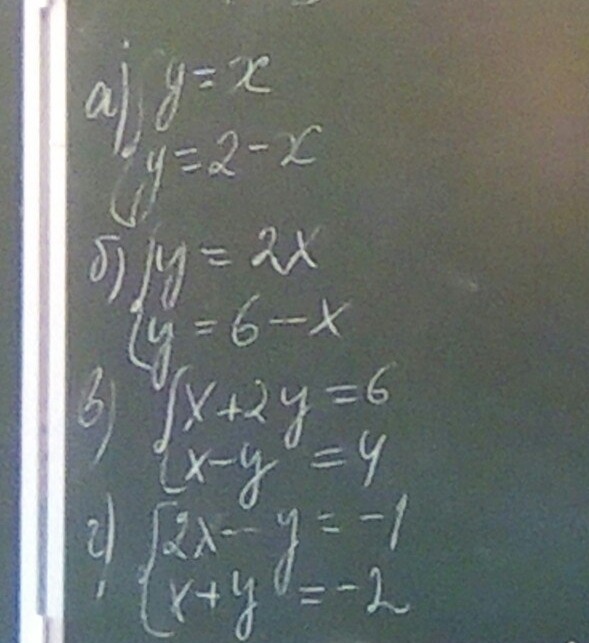 а) { y = x
y = 2 - x
б) { y = 2x
y = 6 - x
в) { x + 2y = 6
x - y = 4
г) { 2x - y = -1
x + y = -2